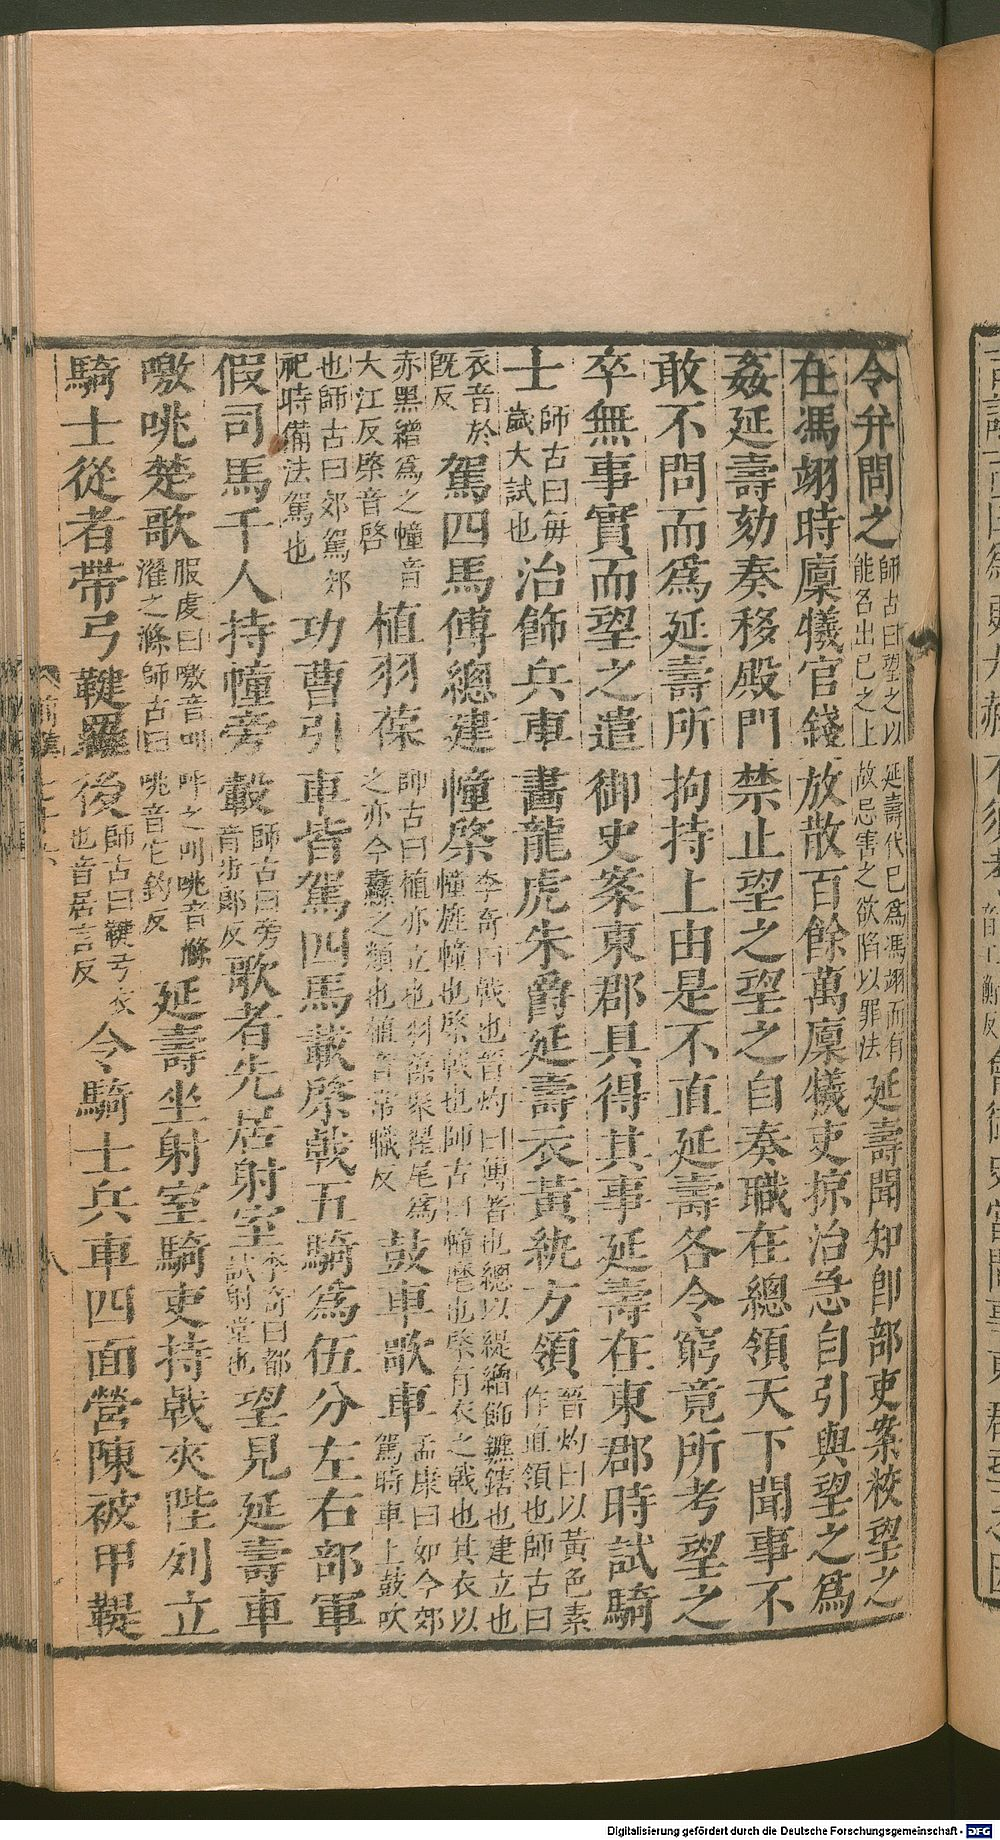 令弁問之師古曰望之以延壽代已爲馮翊而有能名出已之上故忌害之欲陷以罪法延壽聞知卽部吏案校望之
在馮翊時廩犧官錢放散百餘萬廩犧吏掠治急自引與望之爲
姦延壽劾奏移殿門禁止望之望之自奏職在總領天下聞事不
敢不問而爲延壽所拘持上由是不直延壽各令窮竟所考望之
卒無事實而望之遣御史案東郡具得其事延壽在東郡時試騎
士師古曰每歲大試也治飾兵車畫龍虎朱爵延壽衣黃紈方領晉灼曰以黃色素作直領也師古曰
衣音於旣反駕四馬傅總建幢棨李奇曰戟也晉灼曰傅著也總以緹繒飾鑣鎋也建立也幢旌幢也棨戟也師古曰幢麾也棨有衣之戟也其衣以
赤黑繒爲之幢音大江反棨音啓植羽葆師古曰植亦立也羽葆聚翟尾爲之亦今纛之類也植音常職反鼓車歌車孟康曰如今郊駕時車上鼓吹
也師古曰郊駕郊祀時備法駕也功曹引車皆駕四馬載棨戟五騎爲伍分左右部軍
假司馬千人持幢旁轂師古曰旁音步郎反歌者先居射室李奇曰都試射堂也望見延壽車
噭咷楚歌服虔曰噭音叫呼之叫咷音滌濯之滌師古曰咷音它釣反延壽坐射室騎吏持戟夾陛列立
騎士從者帶弓鞬羅後師古曰鞬弓衣也音居言反令騎士兵車四面營陳被甲鞮
Digitalisierung gefördert durch die Deutsche Forschungsgemeinschaft - DFG